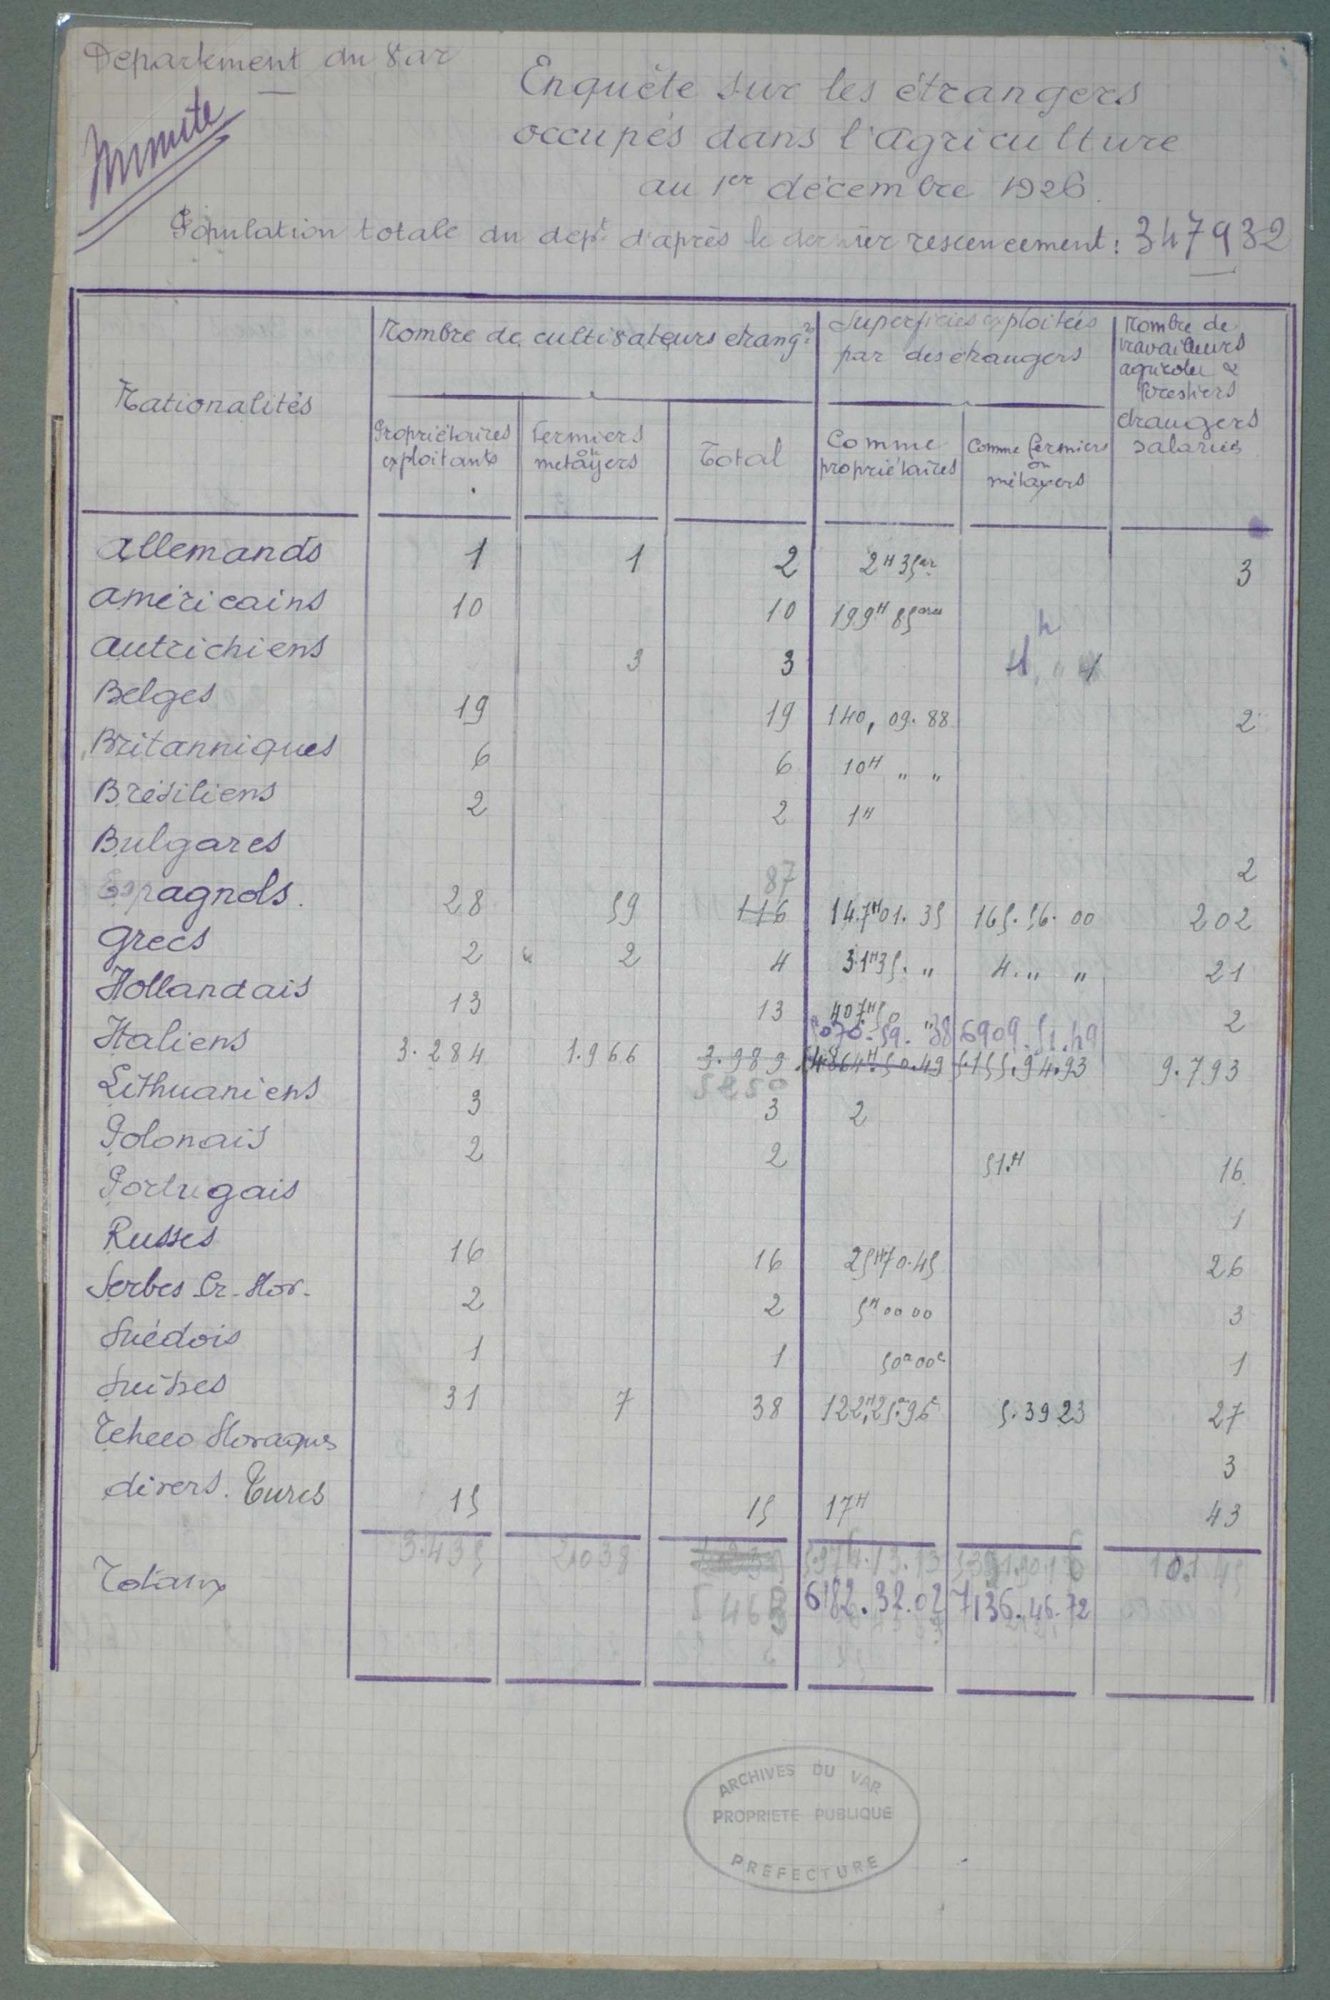 Département du Var
Minute
Enquête sur les étrangers
occupés dans l'agriculture
au 1er décembre 1926
Population totale du dept d'après le dernier rescencement : 347932
Nationalités
Nombre de cultivateurs étrangrs
Superficies exploitées
par des étrangers
Nombre de
travailleurs
agricoles &
forestiers
étrangers
salariés
Propriétaires
exploitants
Fermiers
ou
métayers
Total
Comme
propriétaires
Comme fermiers
ou
métayers
Allemands 1 1 2 2H 35ar 3
Américains 10 10 199H 85ares
Autrichiens 3 3
Belges 19 19 140, 09. 88 2
Britanniques 6 6 10H " "
Brésiliens 2 2 1H
Bulgares 2
87
Espagnols. 28 59 116 147H01. 35 165. 56. 00 202
Grecs 2 2 4 31H35. " 4. " " 21
Hollandais 13 13 407H50 " 2
5070. 59. 38 6909. 51. 49
Italiens 3.284 1.966 3.989 4864H. 50. 49 5.155. 94. 93 9.793
5250
Lithuaniens 3 3 2
Polonais 2 2 51.H 16
Portugais 1
Russes 16 16 25H70. 45 26
Serbes Cr. Slov. 2 2 5H 00 00 3
Suédois 1 1 50a 00c 1
Suisses 31 7 38 122H, 25a. 96c 5. 39 23 27
Tcheco Slovaques 3
divers. Turcs 15 15 17H 43
Totaux 3.435 2.038 10.145
6182. 32. 02 7136. 46. 72
ARCHIVES DU VAR
PROPRIETE PUBLIQUE
PREFECTURE